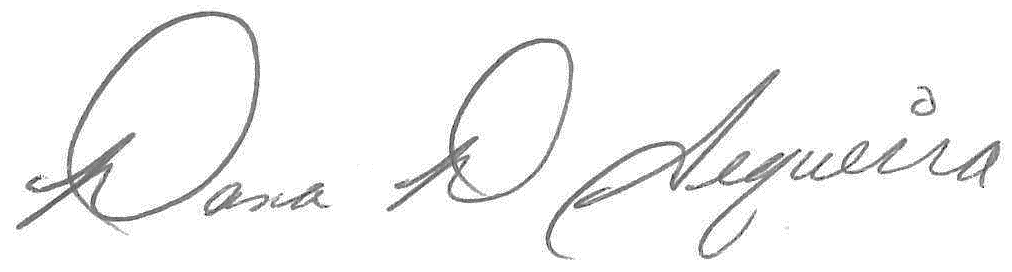 Dana D Sequeira